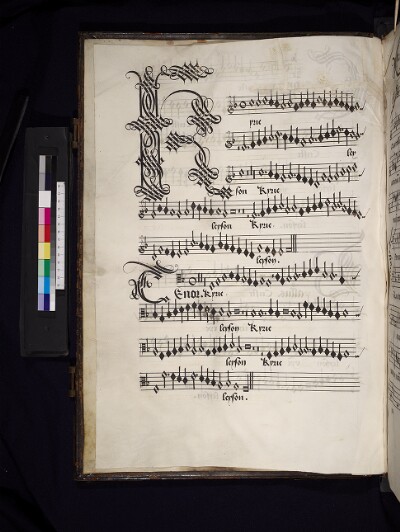 K
yrie
ley
son Kyrie
leyson Kyrie.
leyson.
Tenor. Kyrie
leyson Kyrie
leyson Kyrie
leyson.